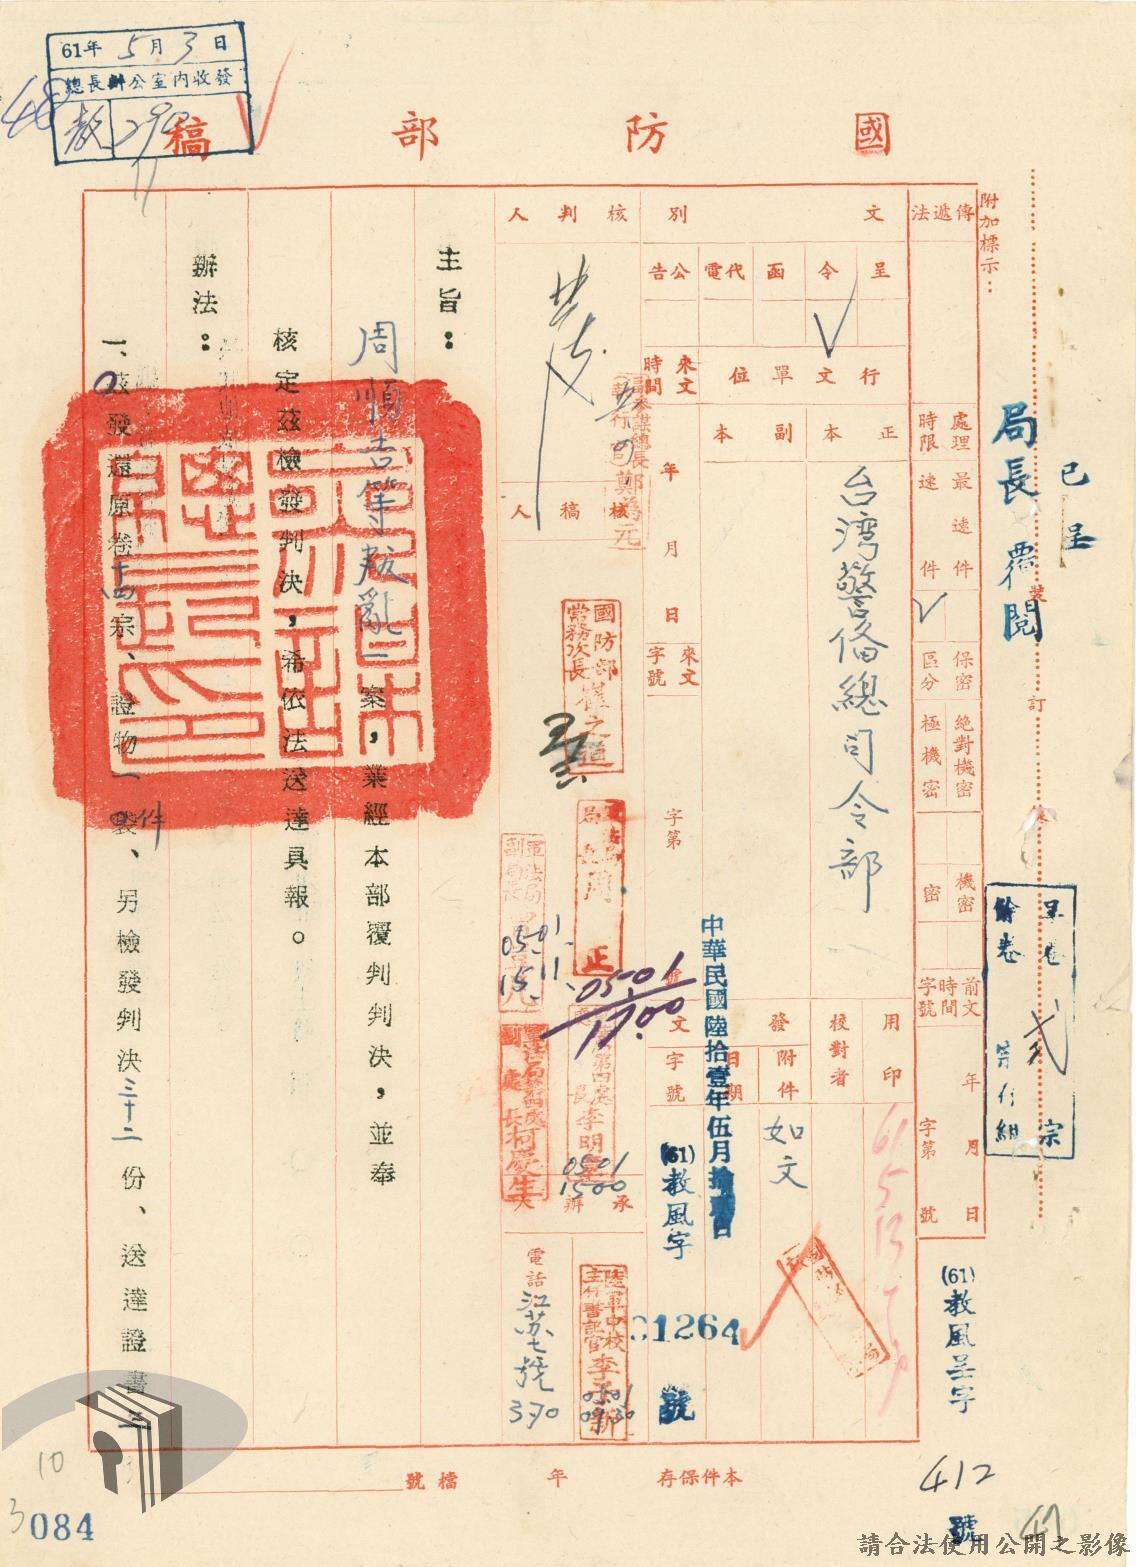 61年5月3日
總長辦公室內收發
國防部稿
附加標示：
傳遞法
文別
核判人
呈
令
函
代電
公告
行文單位
來文時間
處理時限
最速件
速件
正本
副本
年
月
日
核稿人
台灣警備總司令部
來文字號
字第
號
保密區分
絕對機密
極機密
機密
密
前文時間字號
年
月
日
字第
號
用印
校對者
發文
附件
日期
字號
如文
中華民國陸拾壹年伍月
(61)教風字
01264
號
61 5 13
承辦人
電話
江蘇七號
370
副參謀總長
鄭為元
國防部
常務次長
軍法局
副局長
05-01
15.11
05-01
17.00
第四處
處長李明
0501
1500
副處長柯慶生
陸軍中校
主任書記官
0501
0930
主旨：
周順吉等叛亂一案，業經本部覆判判決，並奉
核定茲檢發判決，希依法送達具報。
辦法：
一、茲發還原卷十四宗、證物一件、另檢發判決三十二份、送達證書
已呈
局長覆閱
裝
訂
呈卷
宗
餘卷
(61)教風呈字
412
號
本件保存
年
檔號
47
48
10
3
084
請合法使用公開之影像